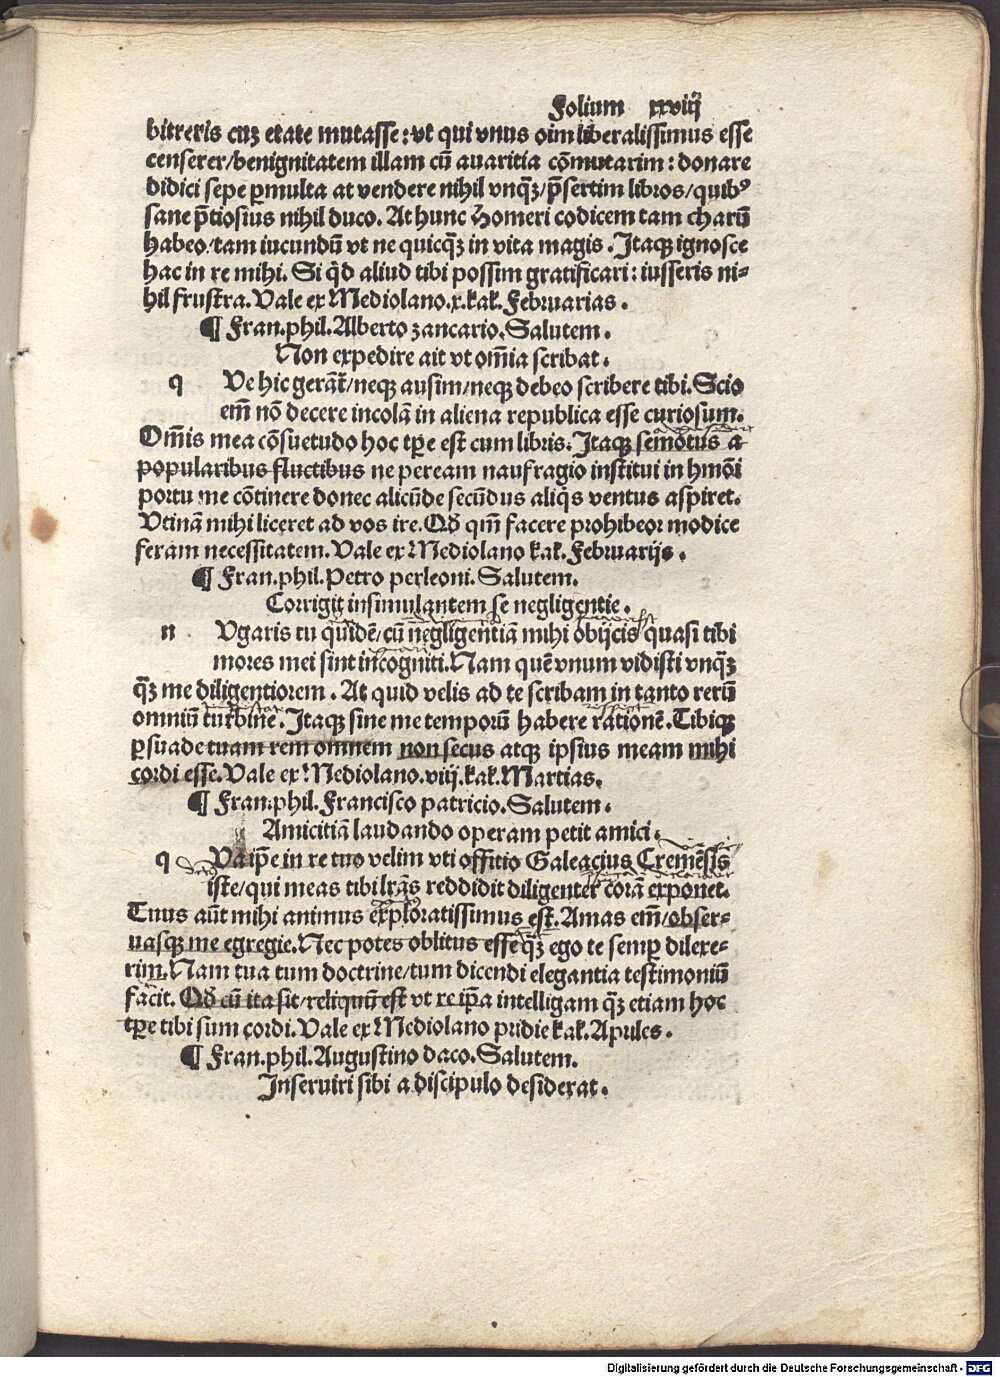 Folium xxviij
bitreris cuʒ etate mutasse: vt qui vnus oīm liberalissimus esse
censerer/benignitatem illam cū auaritia cōmutarim: donare
didici sepe ꝑmulta at vendere nihil vnqʒ̄/p̄sertim libros/quibꝰ
sane p̄tiosius nihil duco. At hunc Homeri codicem tam charū
habeo/tam iucundū vt ne quicqʒ̄ in vita magis. Itaqꝫ ignosce
hac in re mihi. Si qͥd aliud tibi possim gratificari: iusseris ni⸗
hil frustra. Vale ex Mediolano.x.kaƚ.Februarias.
¶ Fran.phil.Alberto zancario.Salutem.
Non expedire ait vt om̄ia scribat.
q Ve hic gerāt̄/neqꝫ ausim/neqꝫ debeo scribere tibi. Scio
em̄ nō decere incolā in aliena republica esse curiosum.
Om̄is mea cōsuetudo hoc tꝑe est cum libris. Itaqꝫ semotus a
popularibus fluctibus ne peream naufragio institui in hmōi
portu me cōtinere donec alicūde secūdus aliqͥs ventus aspiret.
Vtinā mihi liceret ad vos ire. Qd̓ qm̄ facere prohibeor modice
feram necessitatem. Vale ex Mediolano kaƚ. Februarijs.
¶ Fran.phil.Petro perleoni. Salutem.
Corrigit insimulantem se negligentie.
n Vgaris tu quidē/cū negligentiā mihi obijcis quasi tibi
mores mei sint incogniti. Nam quē vnum vidisti vnqʒ̄
qʒ̄ me diligentiorem. At quid velis ad te scribam in tanto rerū
omniū turbine. Itaqꝫ sine me temporū habere rationē. Tibiqꝫ
ꝑsuade tuam rem omnem non secus atqꝫ ipsius meam mihi
cordi esse. Vale ex Mediolano.viij.kaƚ.Martias.
¶ Fran.phil. Francisco patricio. Salutem.
Amicitiā laudando operam petit amici.
q Va ip̄e in re tuo velim vti offitio Galeacius Cremēsis
iste/qui meas tibi lr̄as reddidit diligenter corā exponet.
Tuus aūt mihi animus exploratissimus est. Amas em̄/obser⸗
uasqꝫ me egregie. Nec potes oblitus esse qʒ̄ ego te semꝑ dilexe⸗
rim. Nam tua tum doctrine/tum dicendi elegantia testimoniū
facit. Qd̓ cū ita sit/reliquū est vt re ip̄a intelligam qʒ̄ etiam hoc
tꝑe tibi sum cordi. Vale ex Mediolano pridie kaƚ. Apriles.
¶ Fran.phil. Augustino daco. Salutem.
Inseruiri sibi a discipulo desiderat.
Digitalisierung gefördert durch die Deutsche Forschungsgemeinschaft - DFG